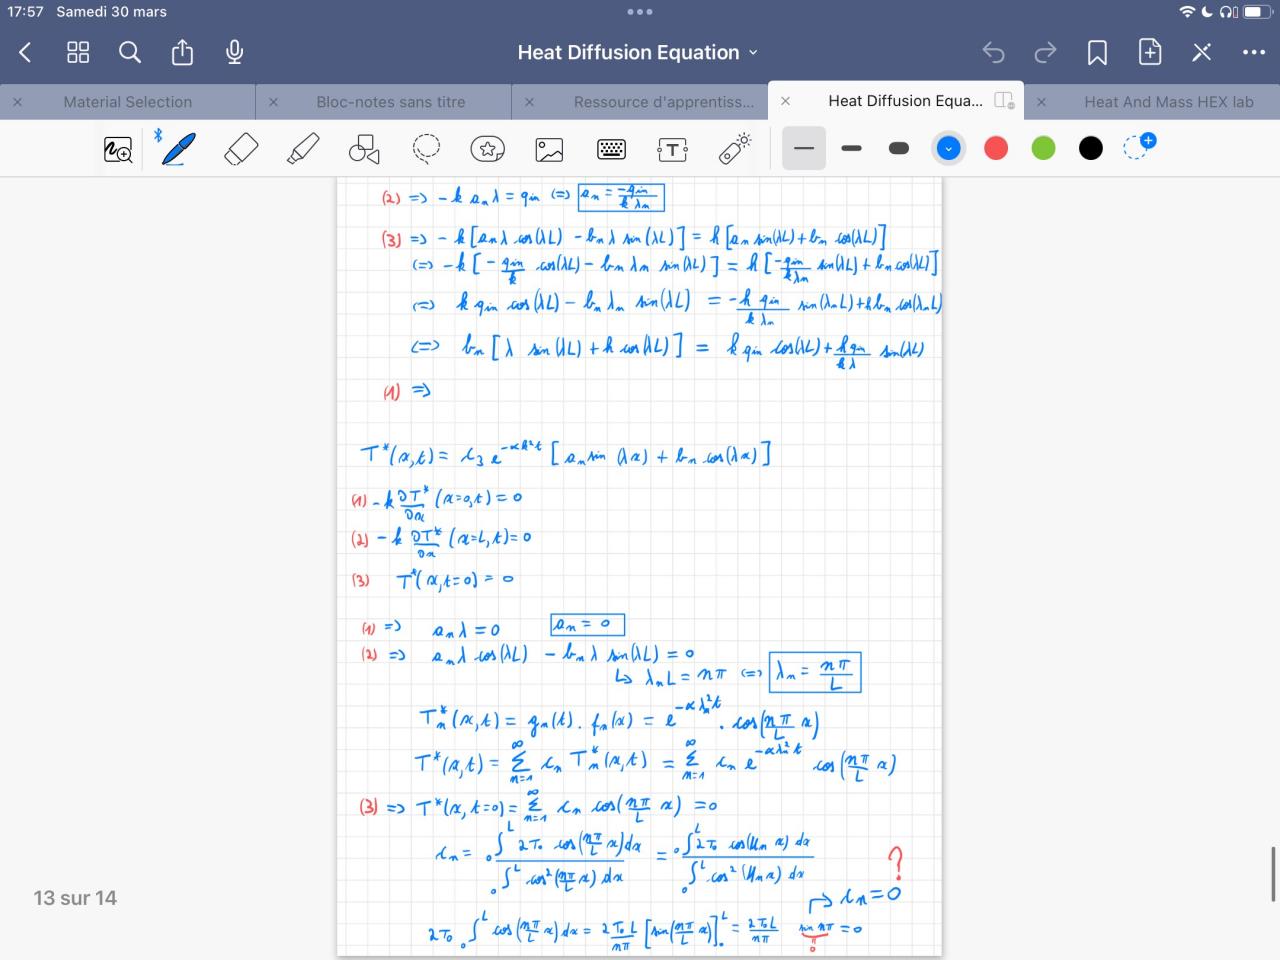 17:57 Samedi 30 mars
Heat Diffusion Equation
Material Selection
Bloc-notes sans titre
Ressource d'apprentiss...
Heat Diffusion Equa...
Heat And Mass HEX lab
T
(2) => -k aₙ λ = qin <=> aₙ = -qin / (k λₙ)
(3) => -k [aₙ λ cos(λL) - bₙ λ sin(λL)] = h [aₙ sin(λL) + bₙ cos(λL)]
<=> -k [- qin/k cos(λL) - bₙ λₙ sin(λL)] = h [-qin/(k λₙ) sin(λL) + bₙ cos(λL)]
<=> k qin cos(λL) - bₙ λₙ sin(λL) = -h qin/(k λₙ) sin(λₙL) + h bₙ cos(λₙL)
<=> bₙ [λ sin(λL) + h cos(λL)] = k qin cos(λL) + h qin/(k λ) sin(λL)
(1) =>
T*(x,t) = c₃ e^(-αλ²t) [aₙ sin(λx) + bₙ cos(λx)]
(1) -k ∂T*/∂x (x=0,t) = 0
(2) -k ∂T*/∂x (x=L,t) = 0
(3) T*(x,t=0) = 0
(1) => aₙ λ = 0 aₙ = 0
(2) => aₙ λ cos(λL) - bₙ λ sin(λL) = 0
↳ λₙL = nπ <=> λₙ = nπ/L
Tₙ*(x,t) = gₙ(t) . fₙ(x) = e^(-αλₙ²t) . cos(nπ/L x)
T*(x,t) = ∑_(n=1)^∞ cₙ Tₙ*(x,t) = ∑_(n=1)^∞ cₙ e^(-αλₙ²t) cos(nπ/L x)
(3) => T*(x,t=0) = ∑_(n=1)^∞ cₙ cos(nπ/L x) = 0
cₙ = ₀∫^L 2T₀ cos(nπ/L x)dx / ₀∫^L cos²(nπ/L x) dx = ₀∫^L 2T₀ cos(μₙ x) dx / ₀∫^L cos²(μₙ x) dx
?
↱ cₙ = 0
2T₀ ₀∫^L cos(nπ/L x)dx = 2T₀L/nπ [sin(nπ/L x)]₀^L = 2T₀L/nπ sin nπ = 0
0
13 sur 14